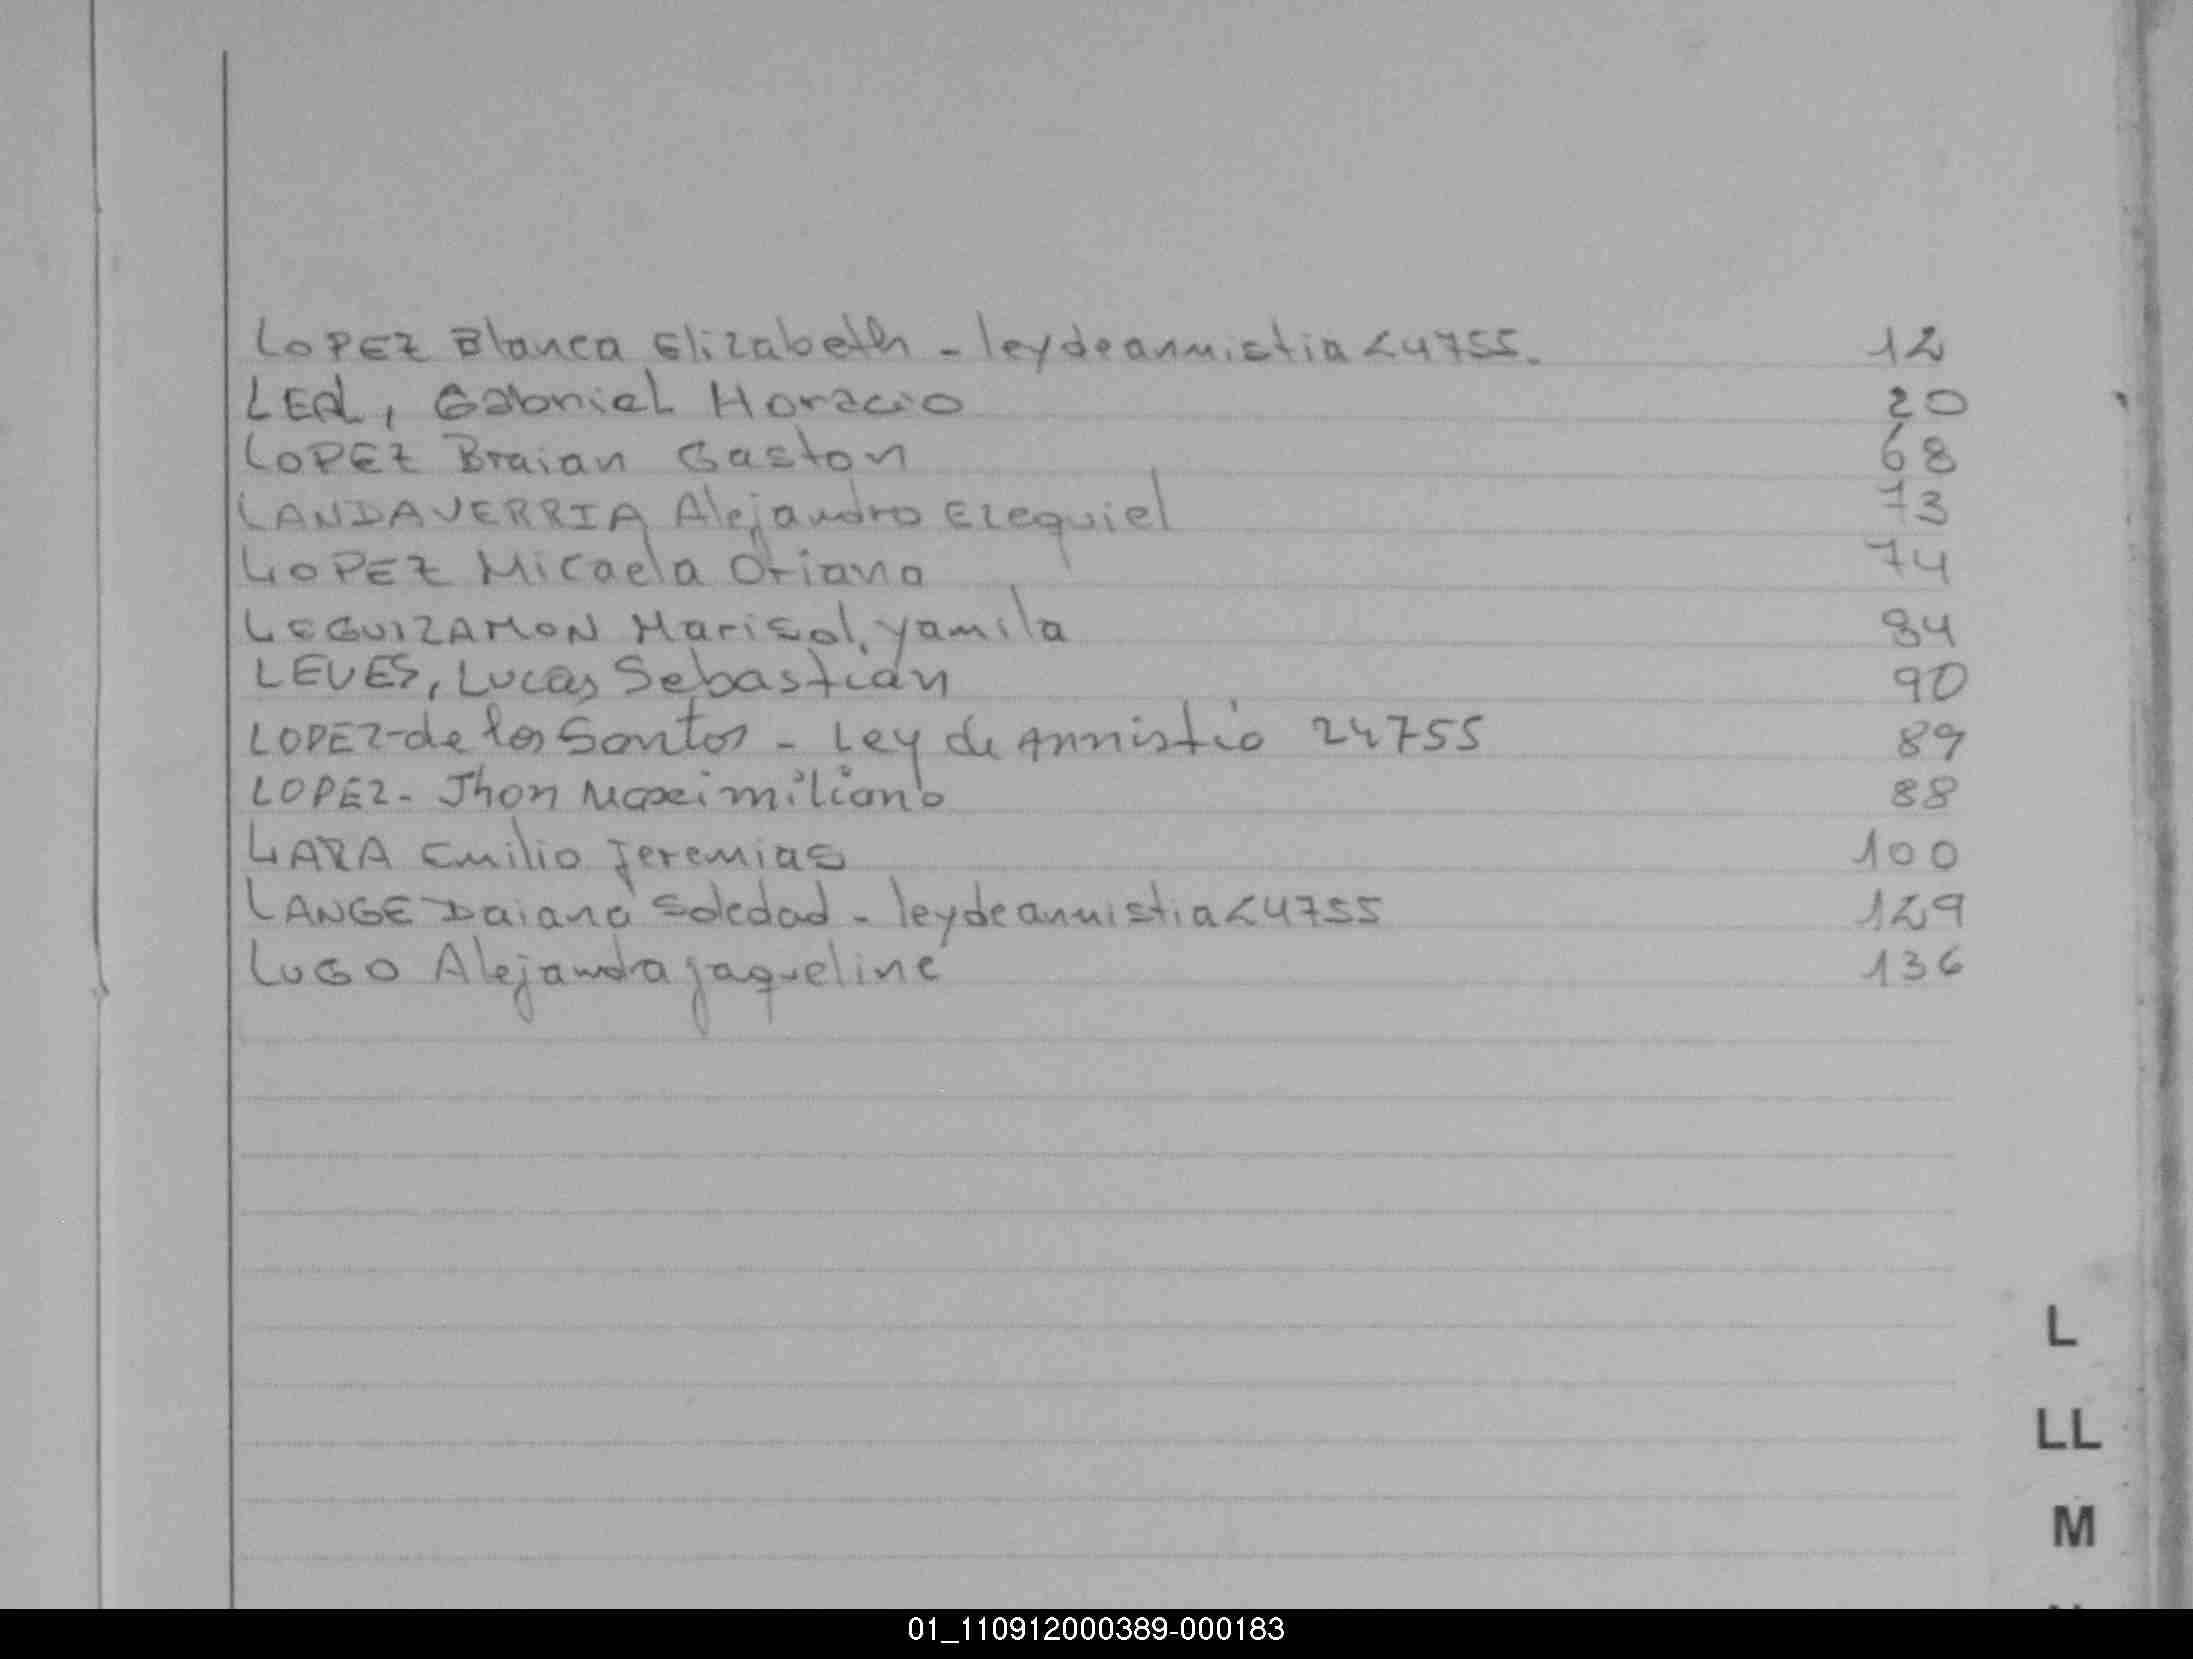 LOPEZ Blanca Elizabeth - ley de annistia 24755. 12
LEAL, Gabriel Horacio 20
LOPEZ Braian Gaston 68
LANDAVERRIA Alejandro Ezequiel 73
LOPEZ Micaela Oriana 74
LEGUIZAMON Marisol, yamila 84
LEVES, Lucas Sebastian 90
LOPEZ-de los Santos - Ley de Annistia 24755 89
LOPEZ- Jhon Maximiliano 88
LARA Emilio Jeremias 100
LANGE Daiana Soledad - ley de annistia 24755 129
LUGO Alejandra jaqueline 136
L
LL
M
01_110912000389-000183